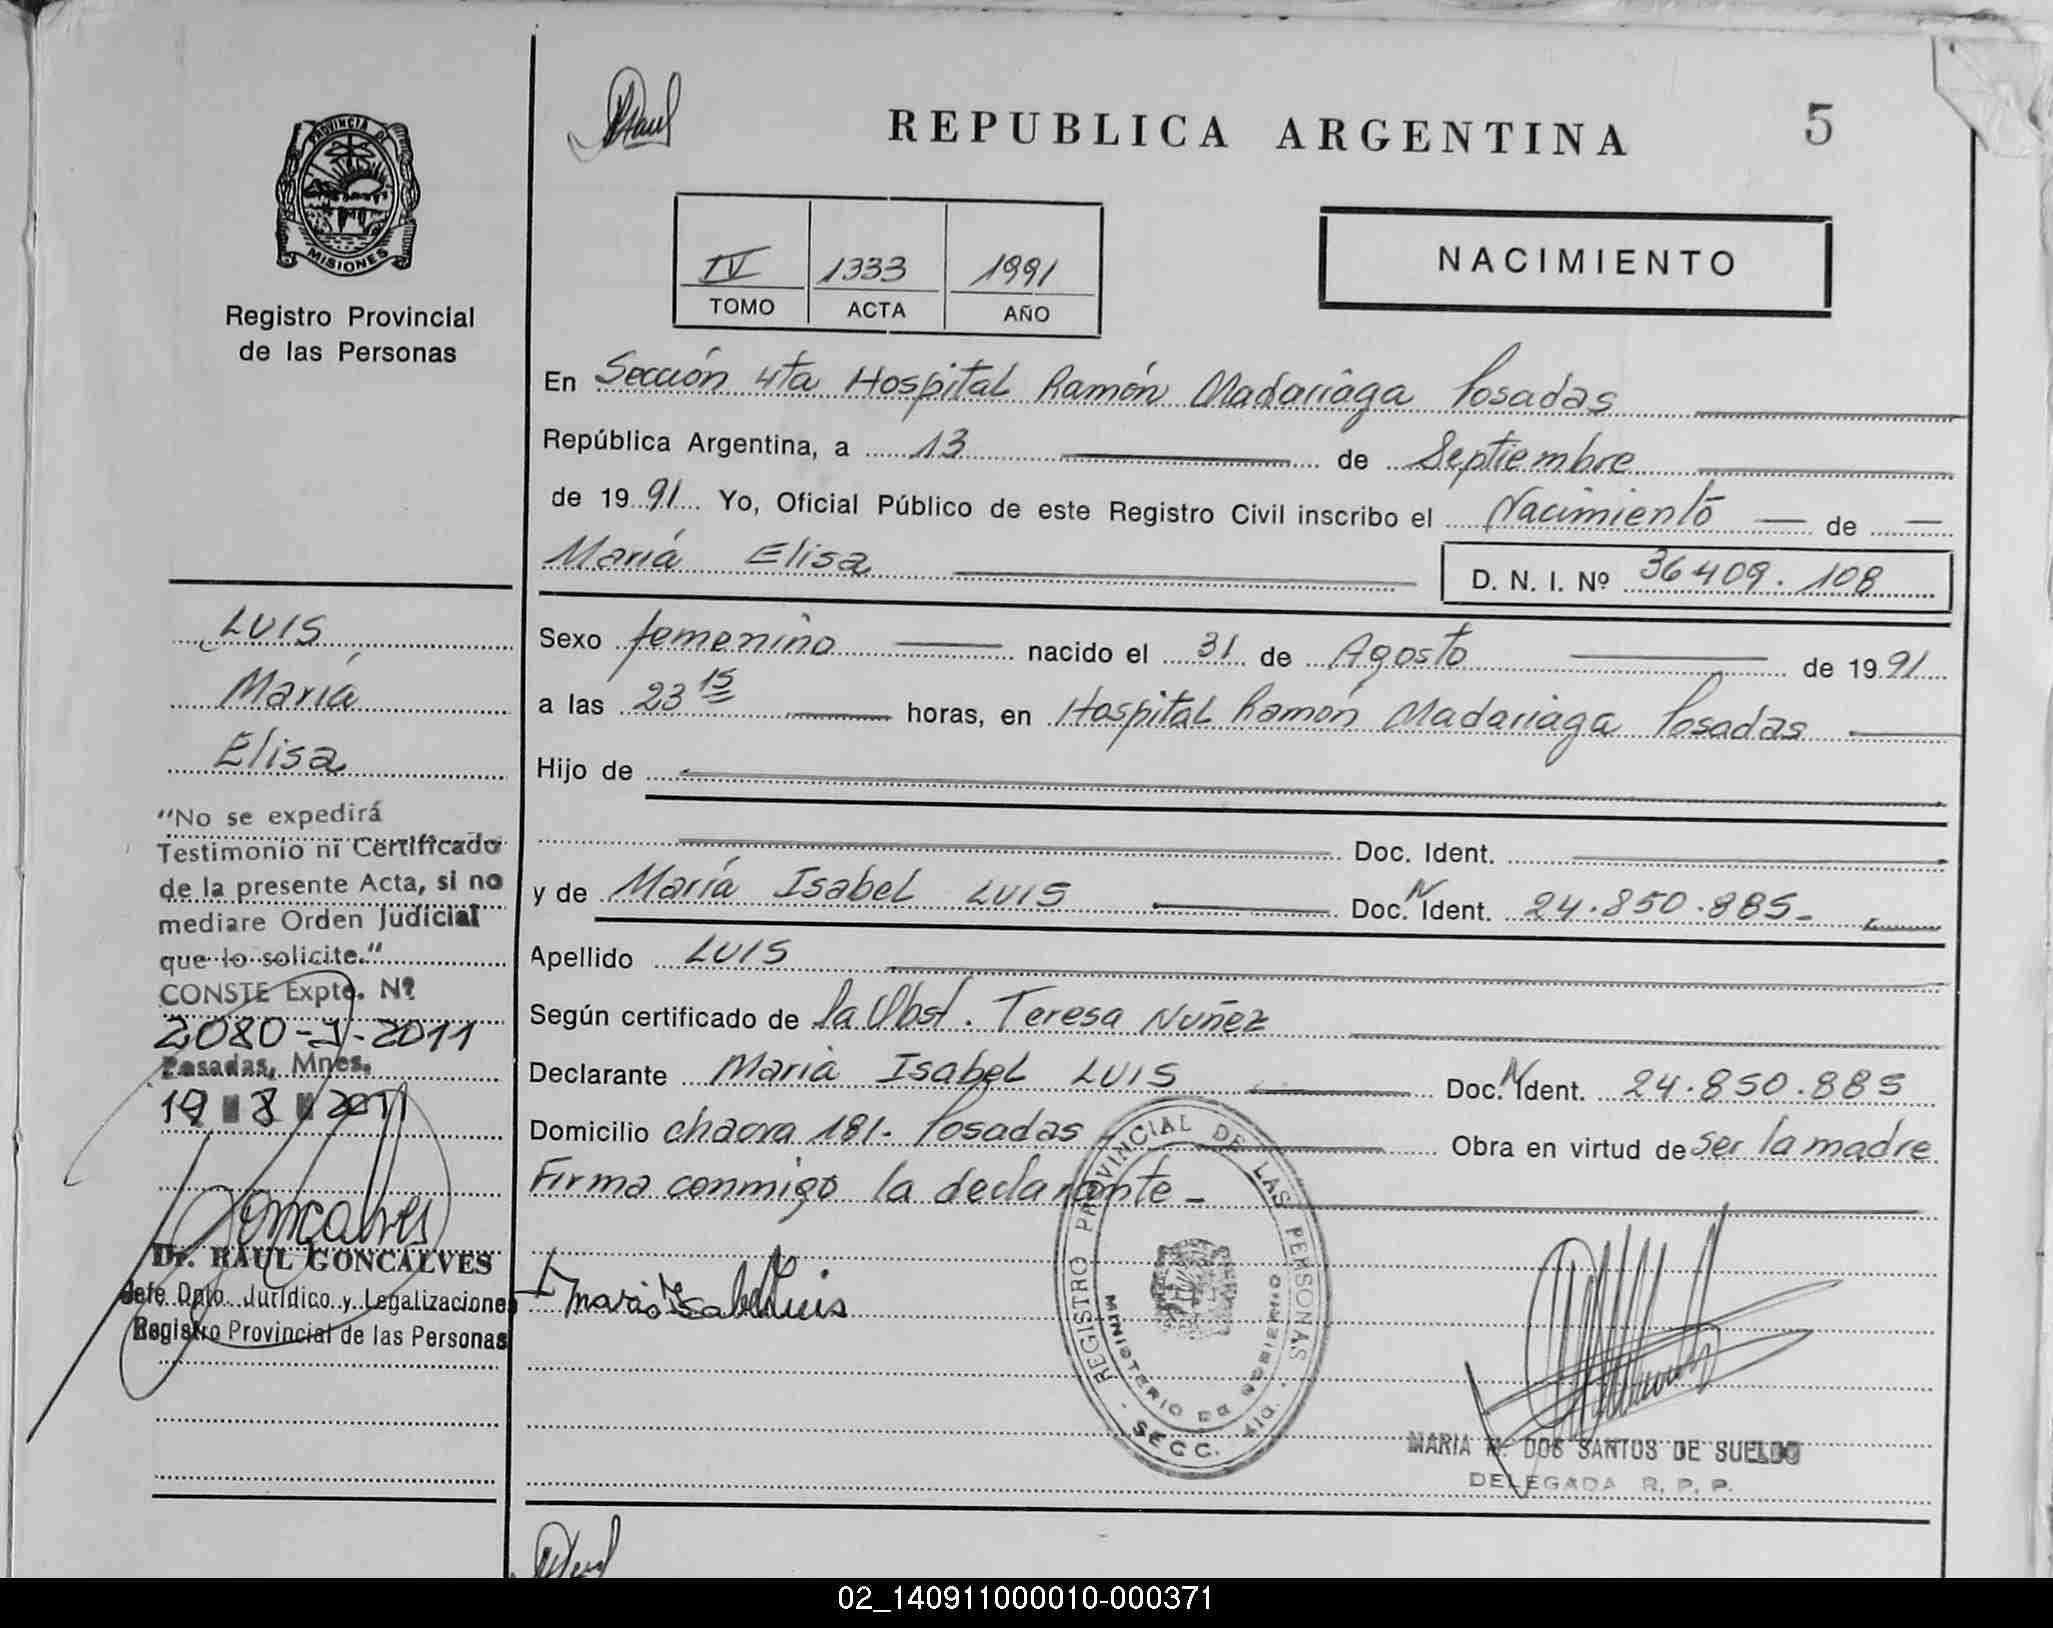 REPUBLICA ARGENTINA
5
PROVINCIA DE
MISIONES
Registro Provincial
de las Personas
IV 1333 1991
TOMO ACTA AÑO
NACIMIENTO
En Sección 4ta Hospital Ramón Madariaga Posadas
República Argentina, a 13 de Septiembre
de 1991 Yo, Oficial Público de este Registro Civil inscribo el Nacimiento de
María Elisa
D. N. I. Nº 36409.108
Sexo femenino nacido el 31 de Agosto de 1991
a las 23 15 horas, en Hospital Ramón Madariaga Posadas
Hijo de
Doc. Ident.
y de María Isabel LUIS Doc. N Ident. 24.850.885-
Apellido LUIS
Según certificado de la Obst. Teresa Nuñez
Declarante María Isabel LUIS Doc. N Ident. 24.850.885
Domicilio chacra 181. Posadas Obra en virtud de ser la madre
Firma conmigo la declarante-
Maria Isabel Luis
REGISTRO PROVINCIAL DE LAS PERSONAS
MINISTERIO DE GOBIERNO
MARIA DOS SANTOS DE SUELDO
DELEGADA R. P. P.
LUIS
María
Elisa
"No se expedirá
Testimonio ni Certificado
de la presente Acta, si no
mediare Orden Judicial
que lo solicite."
CONSTE Expte. Nº
2080-J-2011
Posadas, Mnes.
19 8 2011
Goncalves
Dr. RAUL GONCALVES
Jefe Dpto. Jurídico y Legalizaciones
Registro Provincial de las Personas
02_140911000010-000371